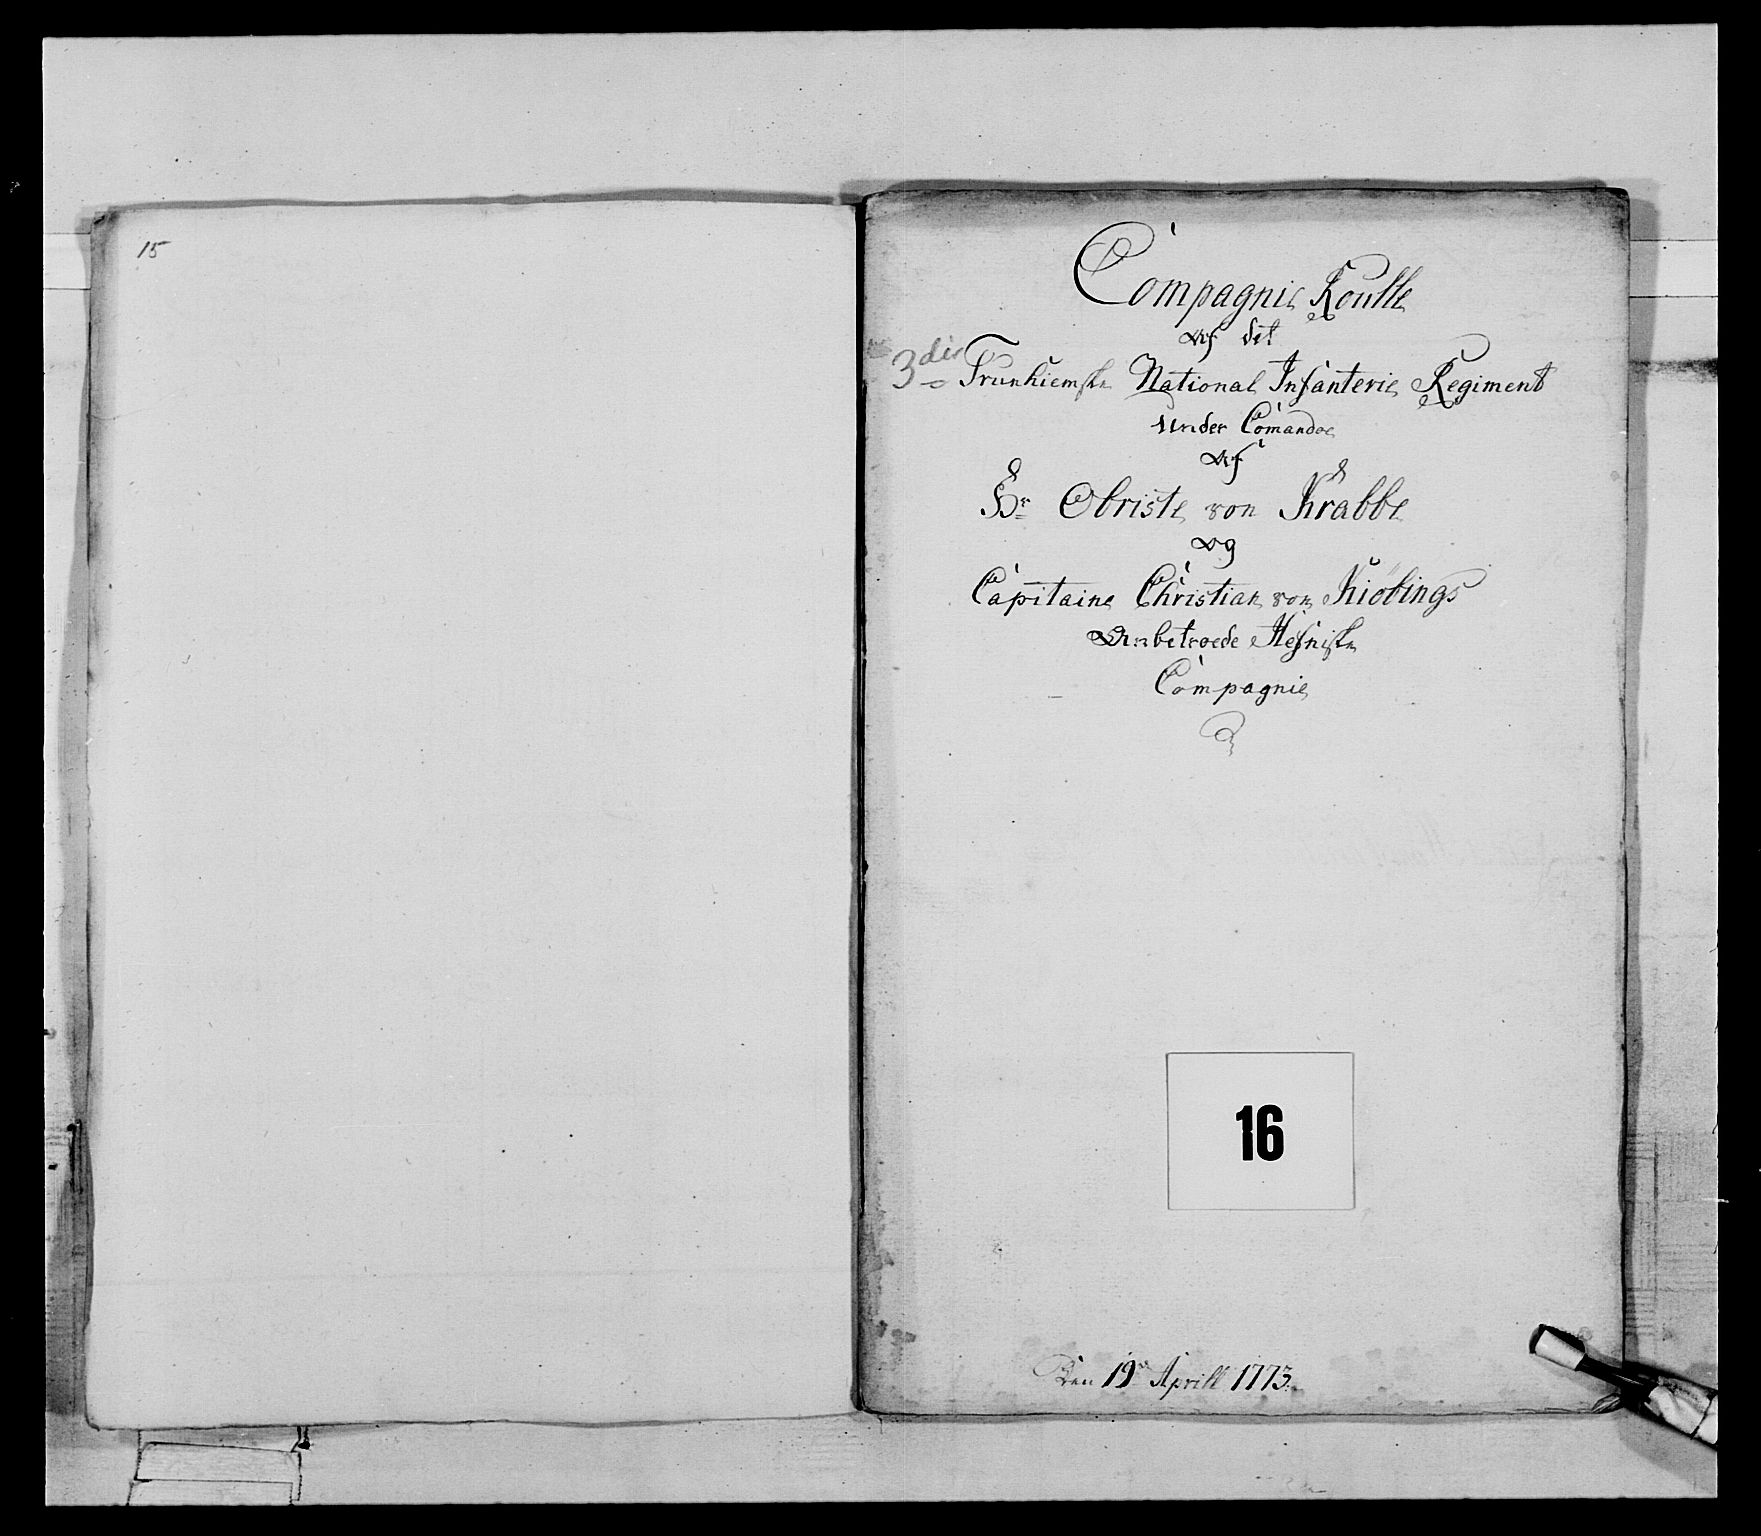 15
Compagnie Roulle
Af det
3die Trunhiemske National Infanterie Regiment
Under Comandoe
Af
Hr Obriste von Krabbe
Og
Capitaine Christian von Kiöbings
Anbetroede Hefniske
Compagnie
16
Den 19de Aprill 1773.